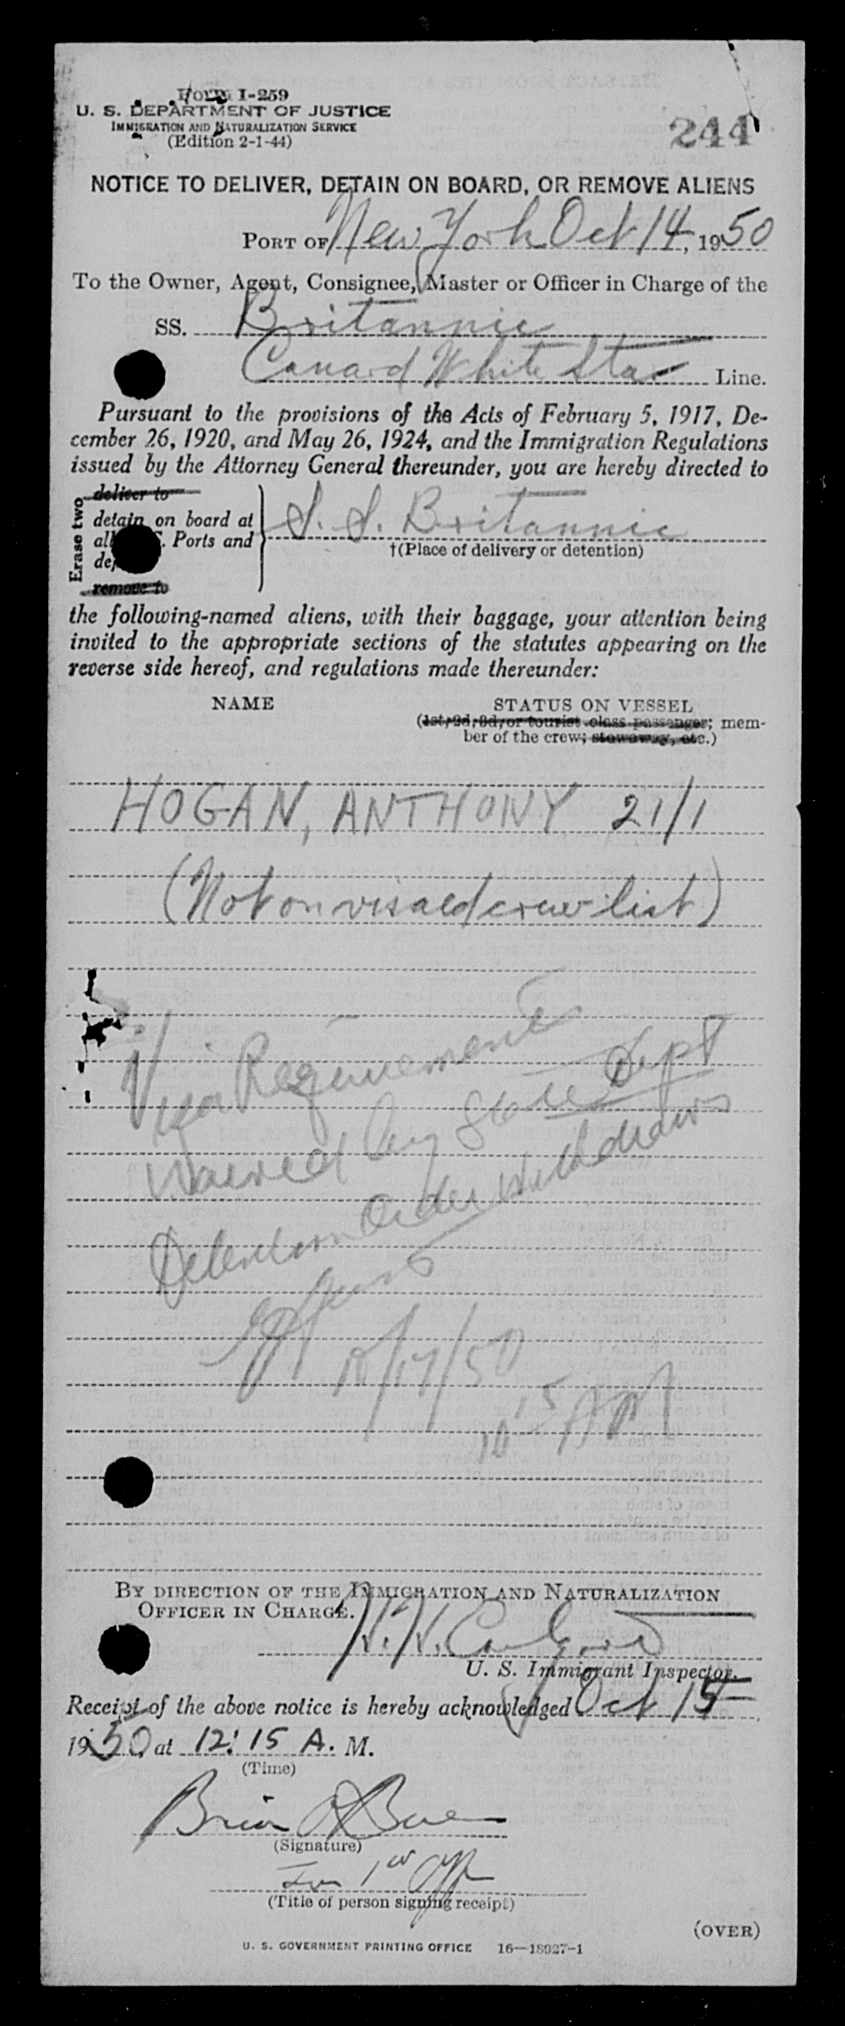 Form I-259
U. S. DEPARTMENT OF JUSTICE
IMMIGRATION AND NATURALIZATION SERVICE
(Edition 2-1-44)
244
NOTICE TO DELIVER, DETAIN ON BOARD, OR REMOVE ALIENS
PORT OF New York Oct 14, 1950
To the Owner, Agent, Consignee, Master or Officer in Charge of the
SS. Britannic
Cunard White Star Line.
Pursuant to the provisions of the Acts of February 5, 1917, De-
cember 26, 1920, and May 26, 1924, and the Immigration Regulations
issued by the Attorney General thereunder, you are hereby directed to
Erase two
deliver to
detain on board at
all Ports and
remove to
S. S. Britannic
†(Place of delivery or detention)
the following-named aliens, with their baggage, your attention being
invited to the appropriate sections of the statutes appearing on the
reverse side hereof, and regulations made thereunder:
NAME
STATUS ON VESSEL
(1st, 2d, 3d, or tourist class passenger; mem-
ber of the crew; stowaway, etc.)
HOGAN, ANTHONY 21/1
(Not on visaed crew list)
Visa Requirements
Waived by State Dept
Detention Order Withdrawn
10/17/50
10 15 AM
BY DIRECTION OF THE IMMIGRATION AND NATURALIZATION
OFFICER IN CHARGE.
U. S. Immigrant Inspector.
Receipt of the above notice is hereby acknowledged Oct 15
1950, at 12:15 A. M.
(Time)
Brian
(Signature)
For 1st Off
(Title of person signing receipt)
(OVER)
U. S. GOVERNMENT PRINTING OFFICE 16—18027-1